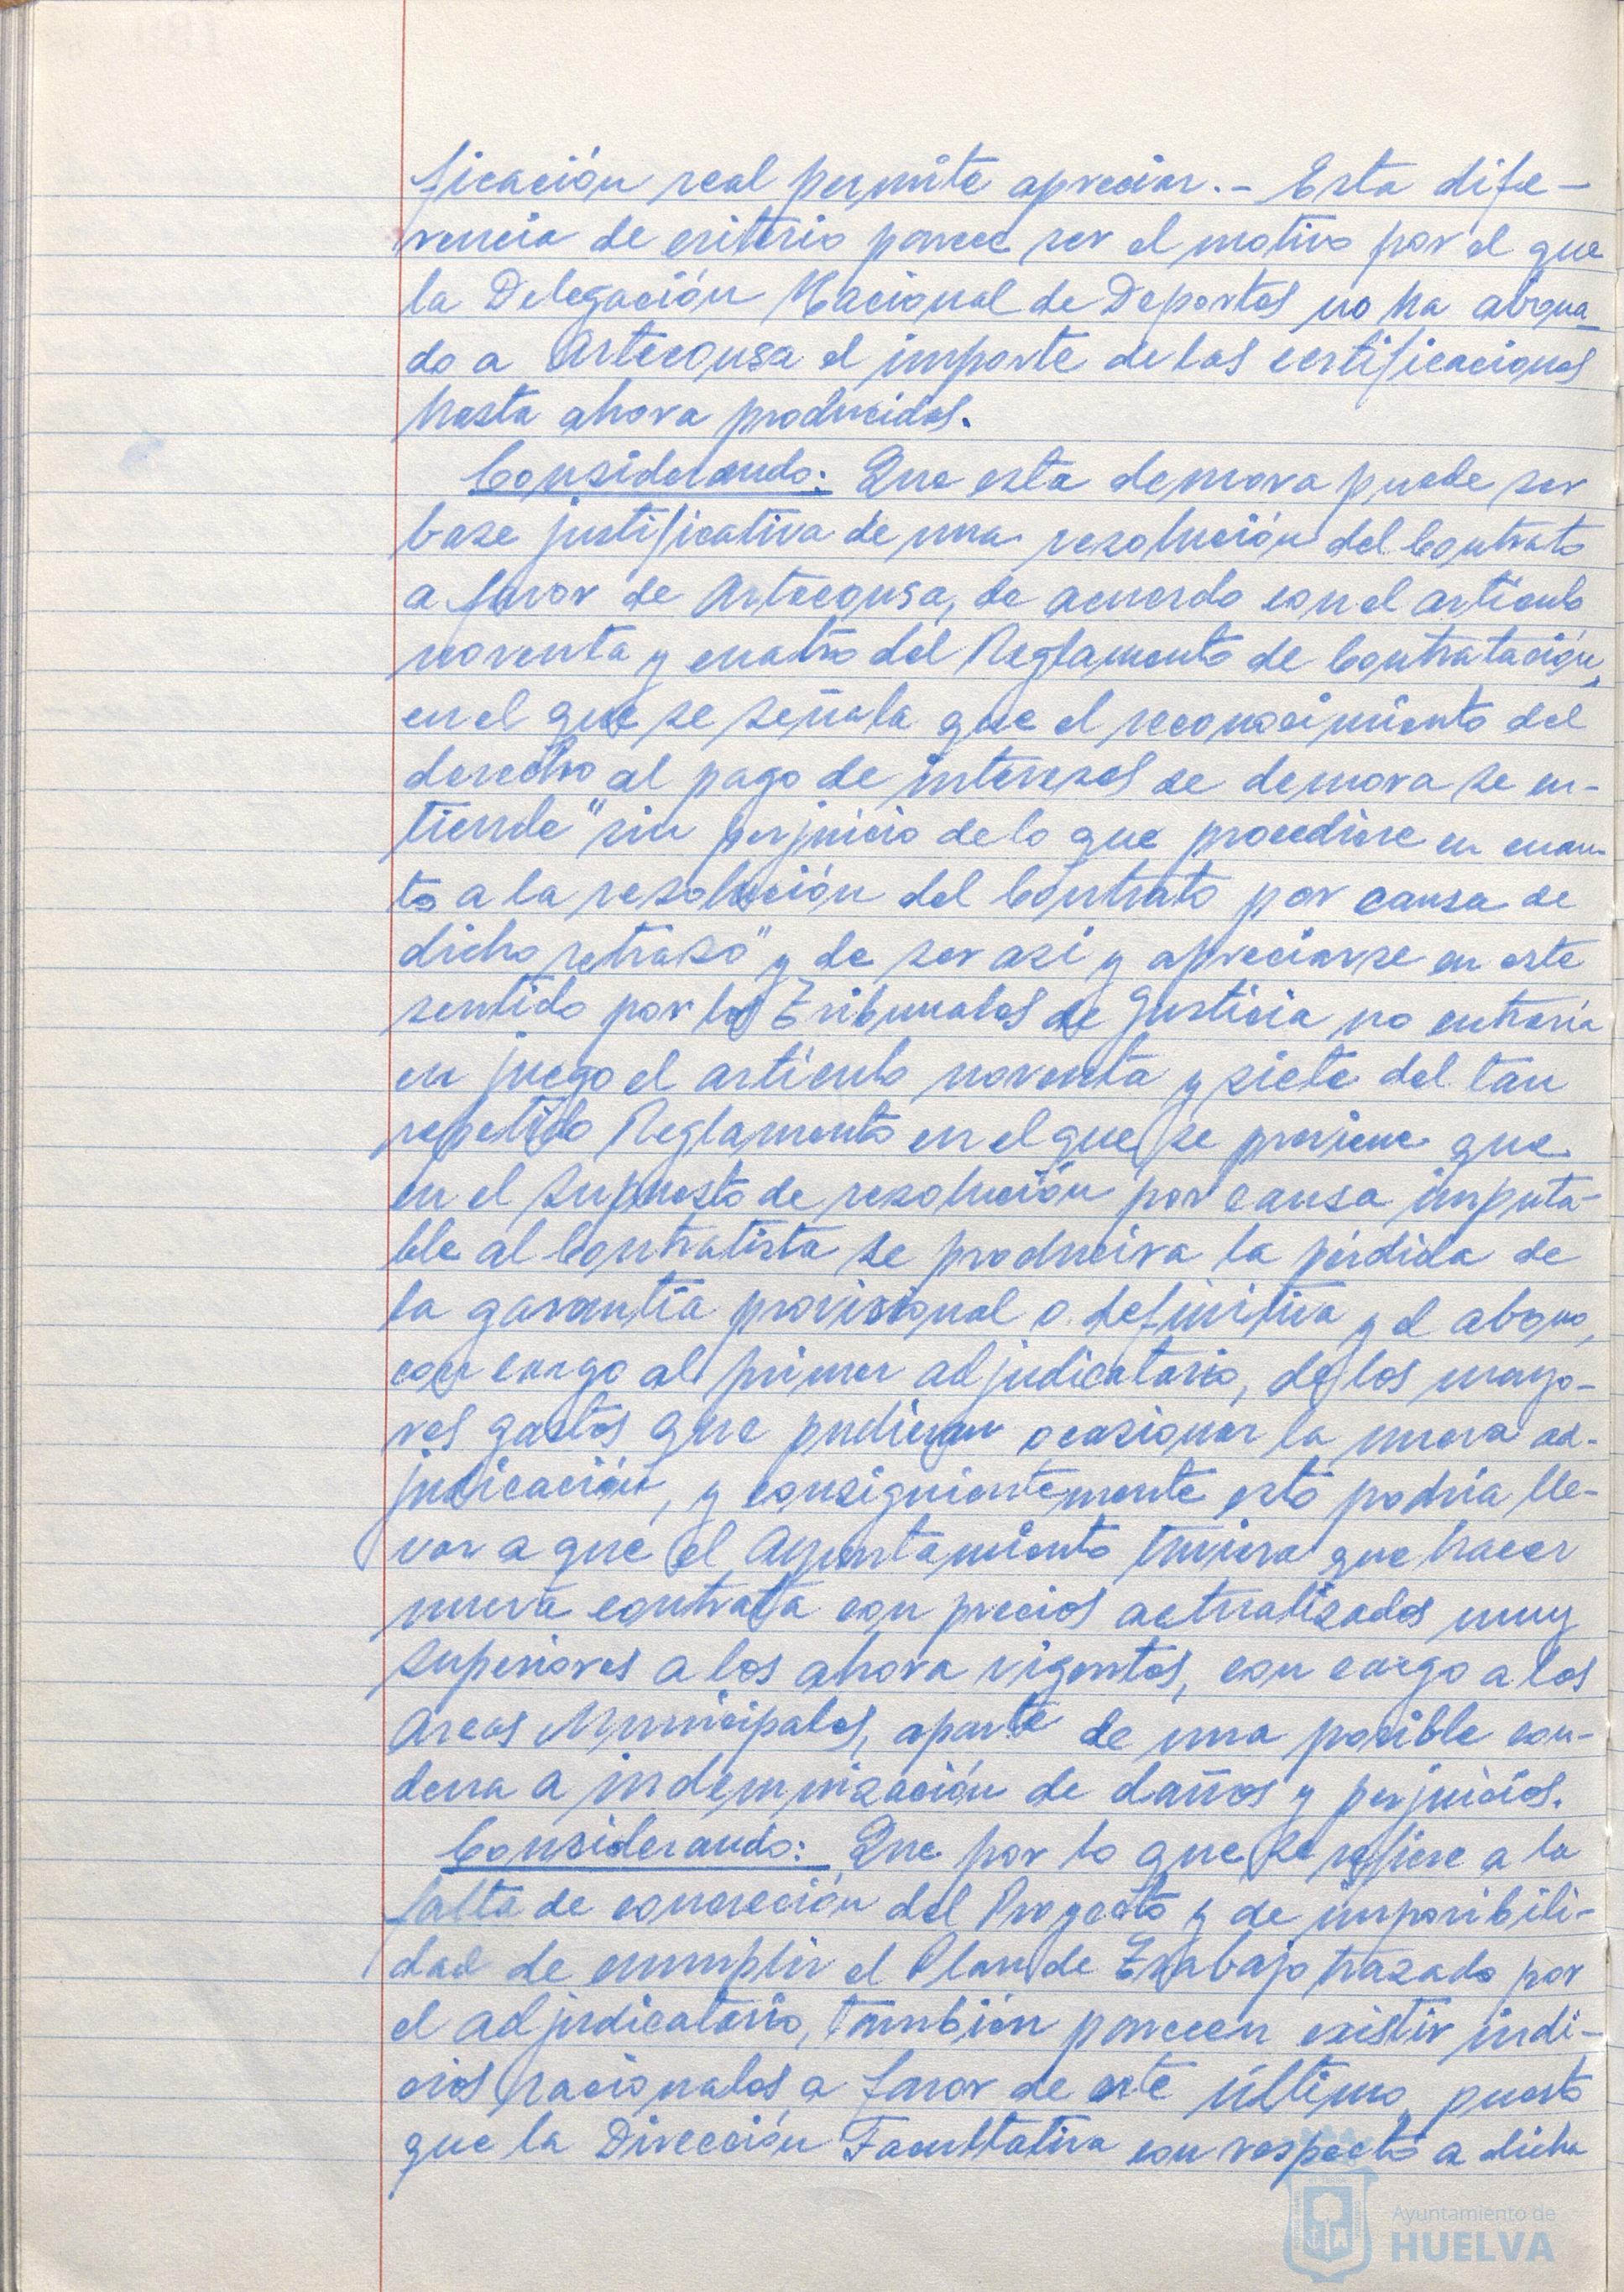 ficación real permite apreciar.- Esta dife-
rencia de criterio parece ser el motivo por el que
la Delegación Nacional de Deportes no ha abona-
do a Arteconsa el importe de las certificaciones
hasta ahora producidas.
Considerando: Que esta demora puede ser
base justificativa de una resolución del Contrato
a favor de Arteconsa, de acuerdo con el artículo
noventa y cuatro del Reglamento de Contratación,
en el que se señala que el reconocimiento del
derecho al pago de intereses de demora se en-
tiende "sin perjuicio de lo que procediere en cuan-
to a la resolución del Contrato por causa de
dicho retraso" y de ser así y apreciarse en este
sentido por los Tribunales de Justicia no entraría
en juego el artículo noventa y siete del tan
repetido Reglamento en el que se previene que
en el supuesto de resolución por causa imputa-
ble al Contratista se producirá la pérdida de
la garantía provisional o definitiva y el abono,
con cargo al primer adjudicatario, de los mayo-
res gastos que pudieran ocasionar la nueva ad-
judicación, y consiguientemente esto podría lle-
var a que el Ayuntamiento tuviera que hacer
nueva contrata con precios actualizados muy
superiores a los ahora vigentes, con cargo a las
Arcas Municipales, aparte de una posible con-
dena a indemnización de daños y perjuicios.
Considerando: Que por lo que se refiere a la
falta de concreción del Proyecto y de imposibili-
dad de cumplir el Plan de Trabajo trazado por
el adjudicatario, también parecen existir indi-
cios racionales a favor de este último, puesto
que la Dirección Facultativa con respecto a dicha
Ayuntamiento de
HUELVA